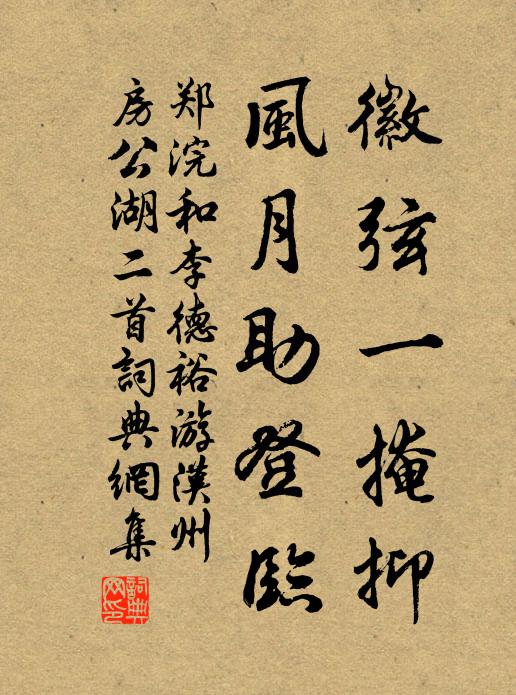 徽弦一掩抑
風月助登臨
郑浣和李德裕游漢州
房公湖二首詞典網集
詞典網印